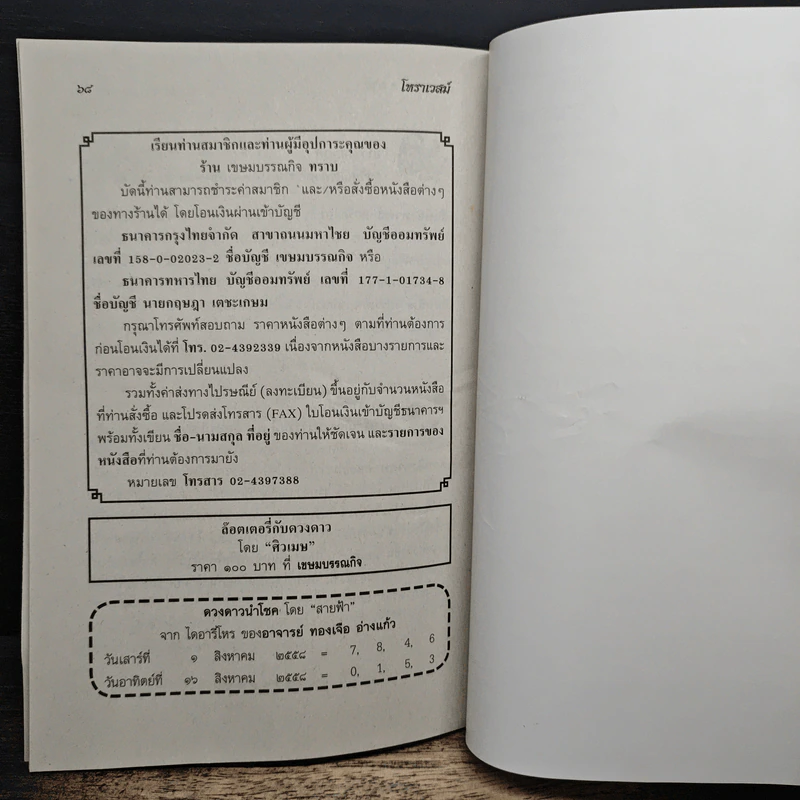 ๖๘
โหราเวสม์
เรียนท่านสมาชิกและท่านผู้มีอุปการะคุณของ
ร้าน เขษมบรรณกิจ ทราบ
บัดนี้ท่านสามารถชำระค่าสมาชิก และ/หรือสั่งซื้อหนังสือต่างๆ
ของทางร้านได้ โดยโอนเงินผ่านเข้าบัญชี
ธนาคารกรุงไทยจำกัด สาขาถนนมหาไชย บัญชีออมทรัพย์
เลขที่ 158-0-02023-2 ชื่อบัญชี เขษมบรรณกิจ หรือ
ธนาคารทหารไทย บัญชีออมทรัพย์ เลขที่ 177-1-01734-8
ชื่อบัญชี นายกฤษฎา เตชะเกษม
กรุณาโทรศัพท์สอบถาม ราคาหนังสือต่างๆ ตามที่ท่านต้องการ
ก่อนโอนเงินได้ที่ โทร. 02-4392339 เนื่องจากหนังสือบางรายการและ
ราคาอาจจะมีการเปลี่ยนแปลง
รวมทั้งค่าส่งทางไปรษณีย์ (ลงทะเบียน) ขึ้นอยู่กับจำนวนหนังสือ
ที่ท่านสั่งซื้อ และโปรดส่งโทรสาร (FAX) ใบโอนเงินเข้าบัญชีธนาคารฯ
พร้อมทั้งเขียน ชื่อ-นามสกุล ที่อยู่ ของท่านให้ชัดเจน และรายการของ
หนังสือที่ท่านต้องการมายัง
หมายเลข โทรสาร 02-4397388
ล๊อตเตอรี่กับดวงดาว
โดย "ศิวเมษ"
ราคา ๑๐๐ บาท ที่ เขษมบรรณกิจ
ดวงดาวนำโชค โดย "สายฟ้า"
จาก ไดอารี่โหร ของอาจารย์ ทองเจือ อ่างแก้ว
วันเสาร์ที่ ๑ สิงหาคม ๒๕๕๘ = 7, 8, 4, 6
วันอาทิตย์ที่ ๑๖ สิงหาคม ๒๕๕๘ = 0, 1, 5, 3